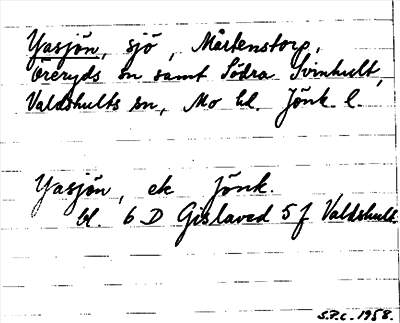 Yasjön, sjö, Mårtenstorp,
Öreryds sn samt Södra Svinhult,
Valdshults sn, Mo hd. Jönk. l.
Yasjön, ek Jönk.
bl. 6 D Gislaved 5 f Valdshult
S.P.C. 1958.